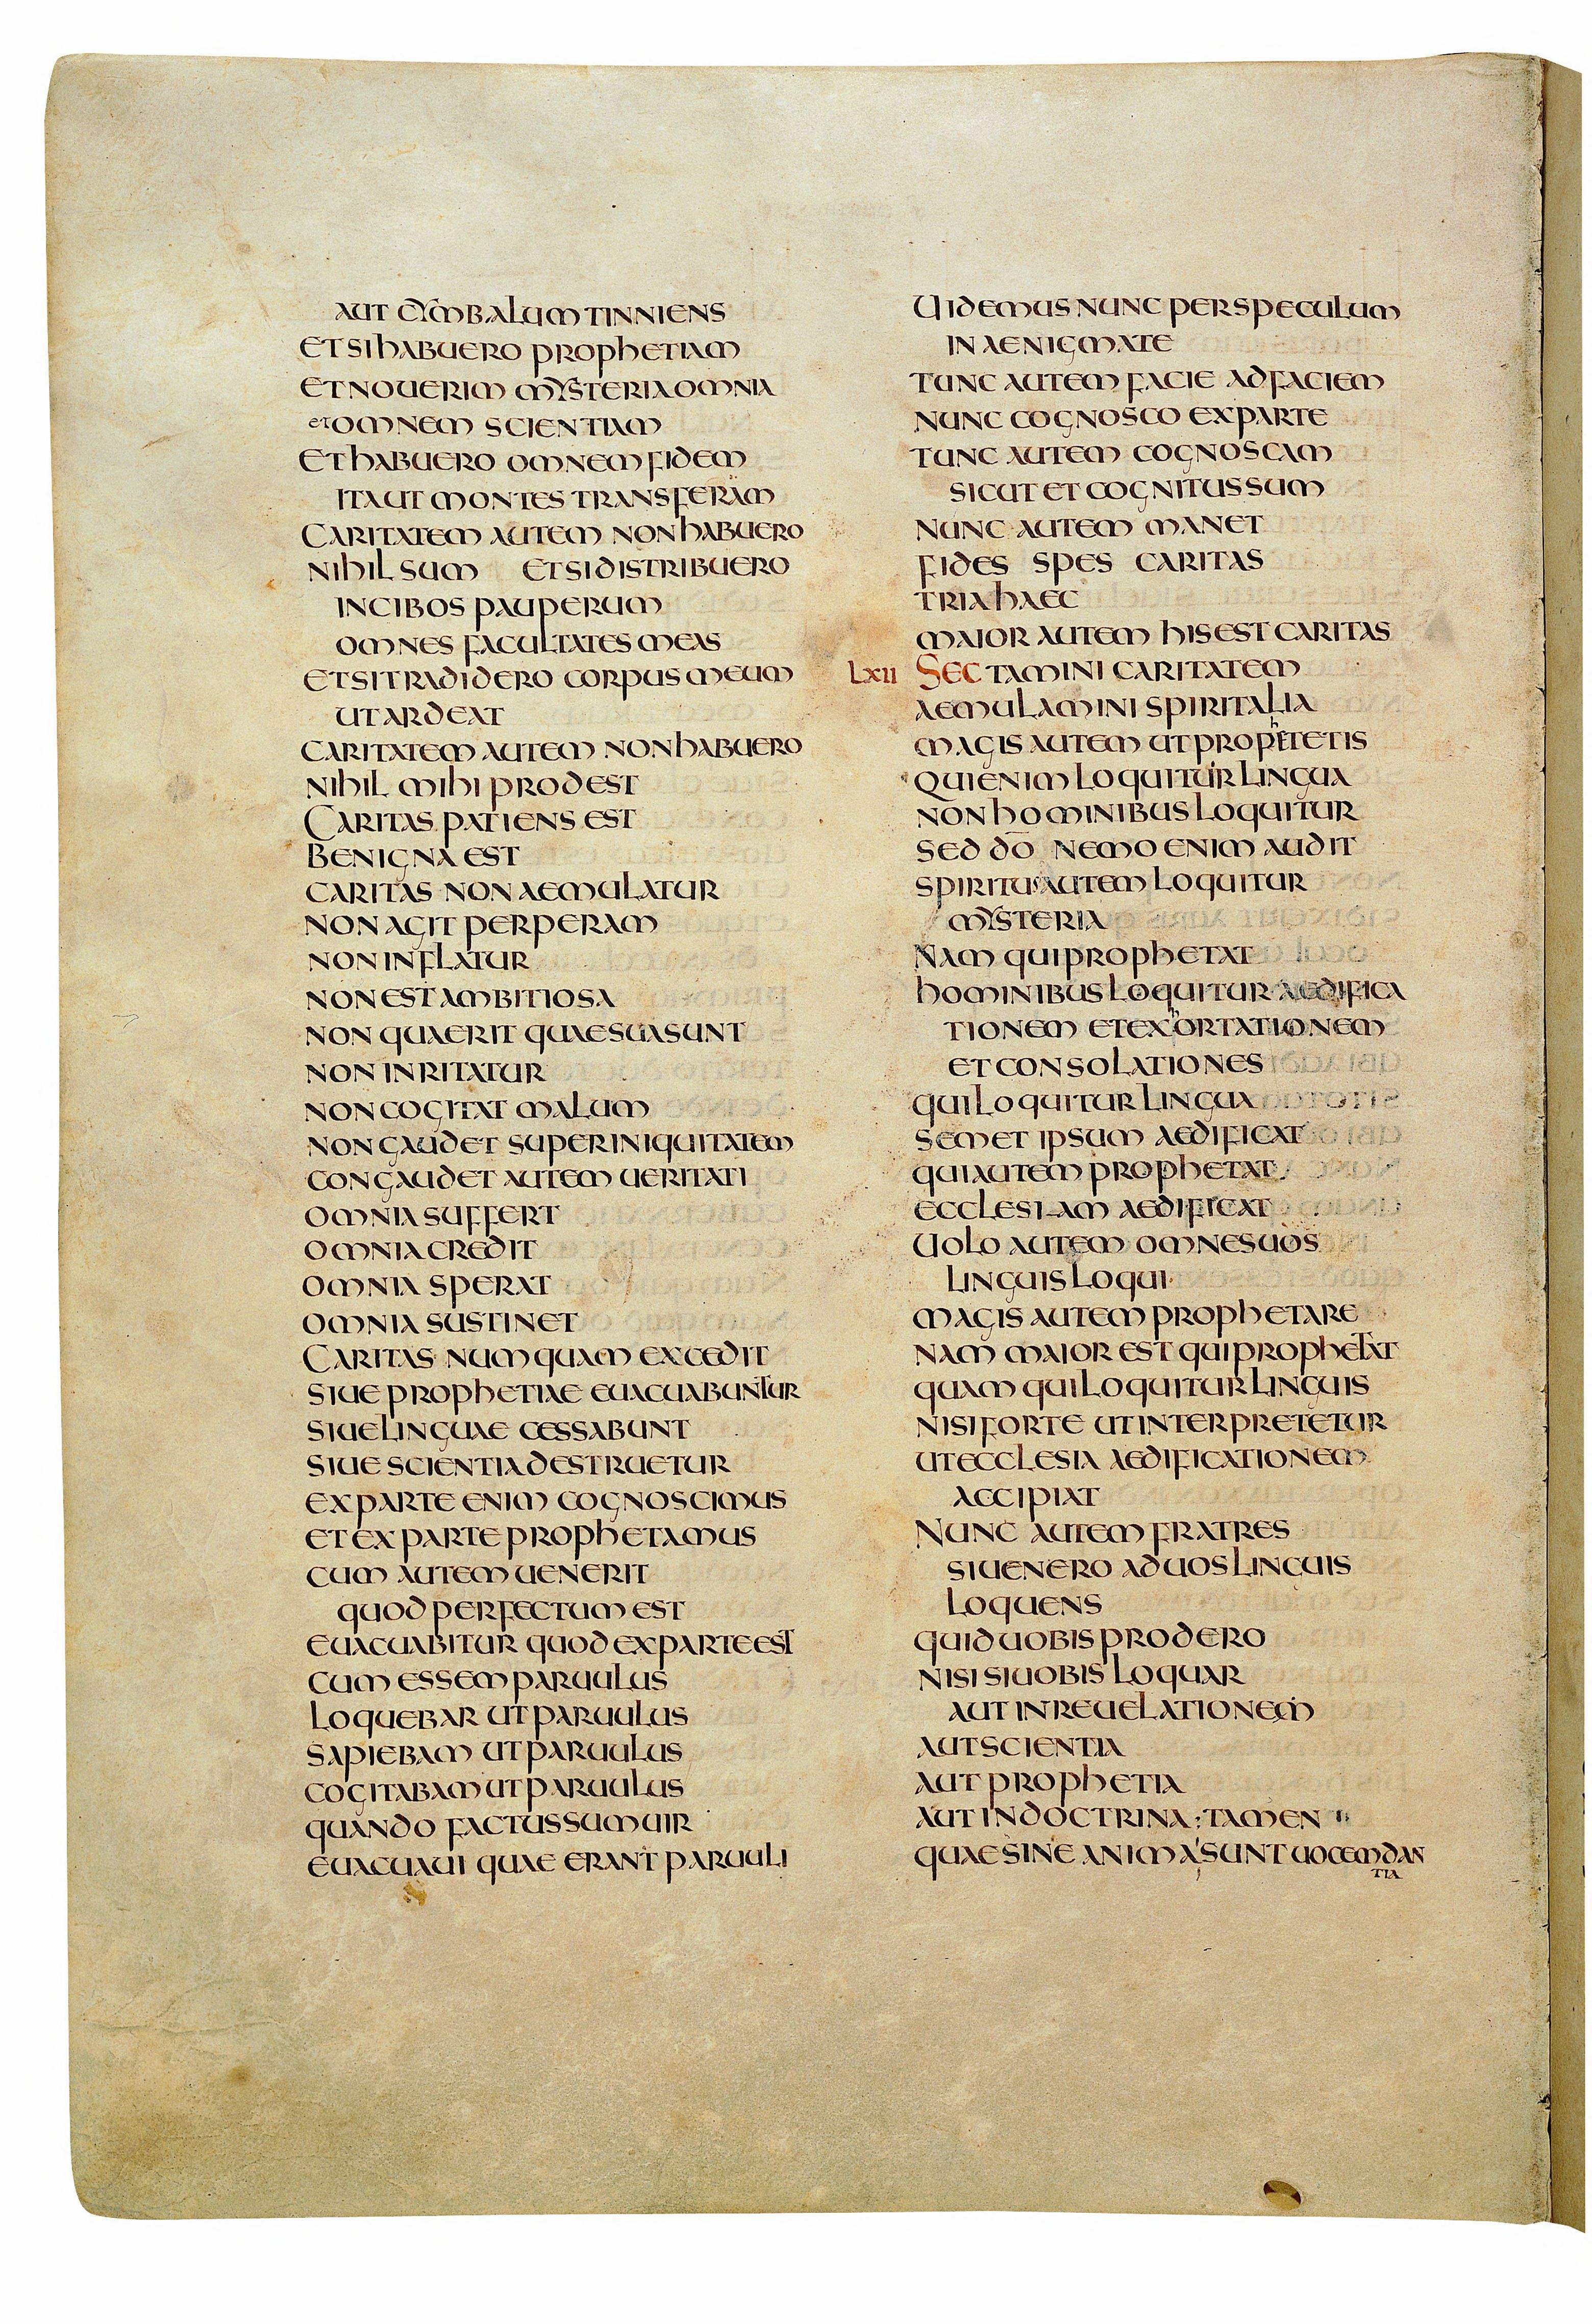 AUT CYMBALUM TINNIENS
ET SI HABUERO PROPHETIAM
ET NOUERIM MYSTERIA OMNIA
ET OMNEM SCIENTIAM
ET HABUERO OMNEM FIDEM
ITA UT MONTES TRANSFERAM
CARITATEM AUTEM NON HABUERO
NIHIL SUM ET SI DISTRIBUERO
IN CIBOS PAUPERUM
OMNES FACULTATES MEAS
ET SI TRADIDERO CORPUS MEUM
UT ARDEAT
CARITATEM AUTEM NON HABUERO
NIHIL MIHI PRODEST
CARITAS PATIENS EST
BENIGNA EST
CARITAS NON AEMULATUR
NON AGIT PERPERAM
NON INFLATUR
NON EST AMBITIOSA
NON QUAERIT QUAE SUA SUNT
NON INRITATUR
NON COGITAT MALUM
NON GAUDET SUPER INIQUITATEM
CONGAUDET AUTEM UERITATI
OMNIA SUFFERT
OMNIA CREDIT
OMNIA SPERAT
OMNIA SUSTINET
CARITAS NUMQUAM EXCEDIT
SIUE PROPHETIAE EUACUABUNTUR
SIUE LINGUAE CESSABUNT
SIUE SCIENTIA DESTRUETUR
EX PARTE ENIM COGNOSCIMUS
ET EX PARTE PROPHETAMUS
CUM AUTEM UENERIT
QUOD PERFECTUM EST
EUACUABITUR QUOD EX PARTE EST
CUM ESSEM PARUULUS
LOQUEBAR UT PARUULUS
SAPIEBAM UT PARUULUS
COGITABAM UT PARUULUS
QUANDO FACTUS SUM UIR
EUACUAUI QUAE ERANT PARUULI
UIDEMUS NUNC PER SPECULUM
IN AENIGMATE
TUNC AUTEM FACIE AD FACIEM
NUNC COGNOSCO EX PARTE
TUNC AUTEM COGNOSCAM
SICUT ET COGNITUS SUM
NUNC AUTEM MANET
FIDES SPES CARITAS
TRIA HAEC
MAIOR AUTEM HIS EST CARITAS
LXII SECTAMINI CARITATEM
AEMULAMINI SPIRITALIA
MAGIS AUTEM UT PROPHETETIS
QUI ENIM LOQUITUR LINGUA
NON HOMINIBUS LOQUITUR
SED DŌ NEMO ENIM AUDIT
SPIRITUS AUTEM LOQUITUR
MYSTERIA
NAM QUI PROPHETAT
HOMINIBUS LOQUITUR AEDIFICA
TIONEM ET EXHORTATIONEM
ET CONSOLATIONES
QUI LOQUITUR LINGUA
SEMET IPSUM AEDIFICAT
QUI AUTEM PROPHETAT
ECCLESIAM AEDIFICAT
UOLO AUTEM OMNES UOS
LINGUIS LOQUI
MAGIS AUTEM PROPHETARE
NAM MAIOR EST QUI PROPHETAT
QUAM QUI LOQUITUR LINGUIS
NISI FORTE UT INTERPRETETUR
UT ECCLESIA AEDIFICATIONEM
ACCIPIAT
NUNC AUTEM FRATRES
SI UENERO AD UOS LINGUIS
LOQUENS
QUID UOBIS PRODERO
NISI SI UOBIS LOQUAR
AUT IN REUELATIONEM
AUT SCIENTIA
AUT PROPHETIA
AUT IN DOCTRINA; TAMEN
QUAE SINE ANIMA SUNT UOCEM DAN
TIA